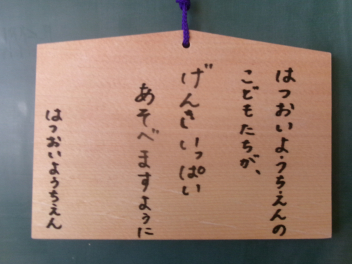 はつおいようちえんの
こどもたちが、
げんきいっぱい
あそべますように
はつおいようちえん